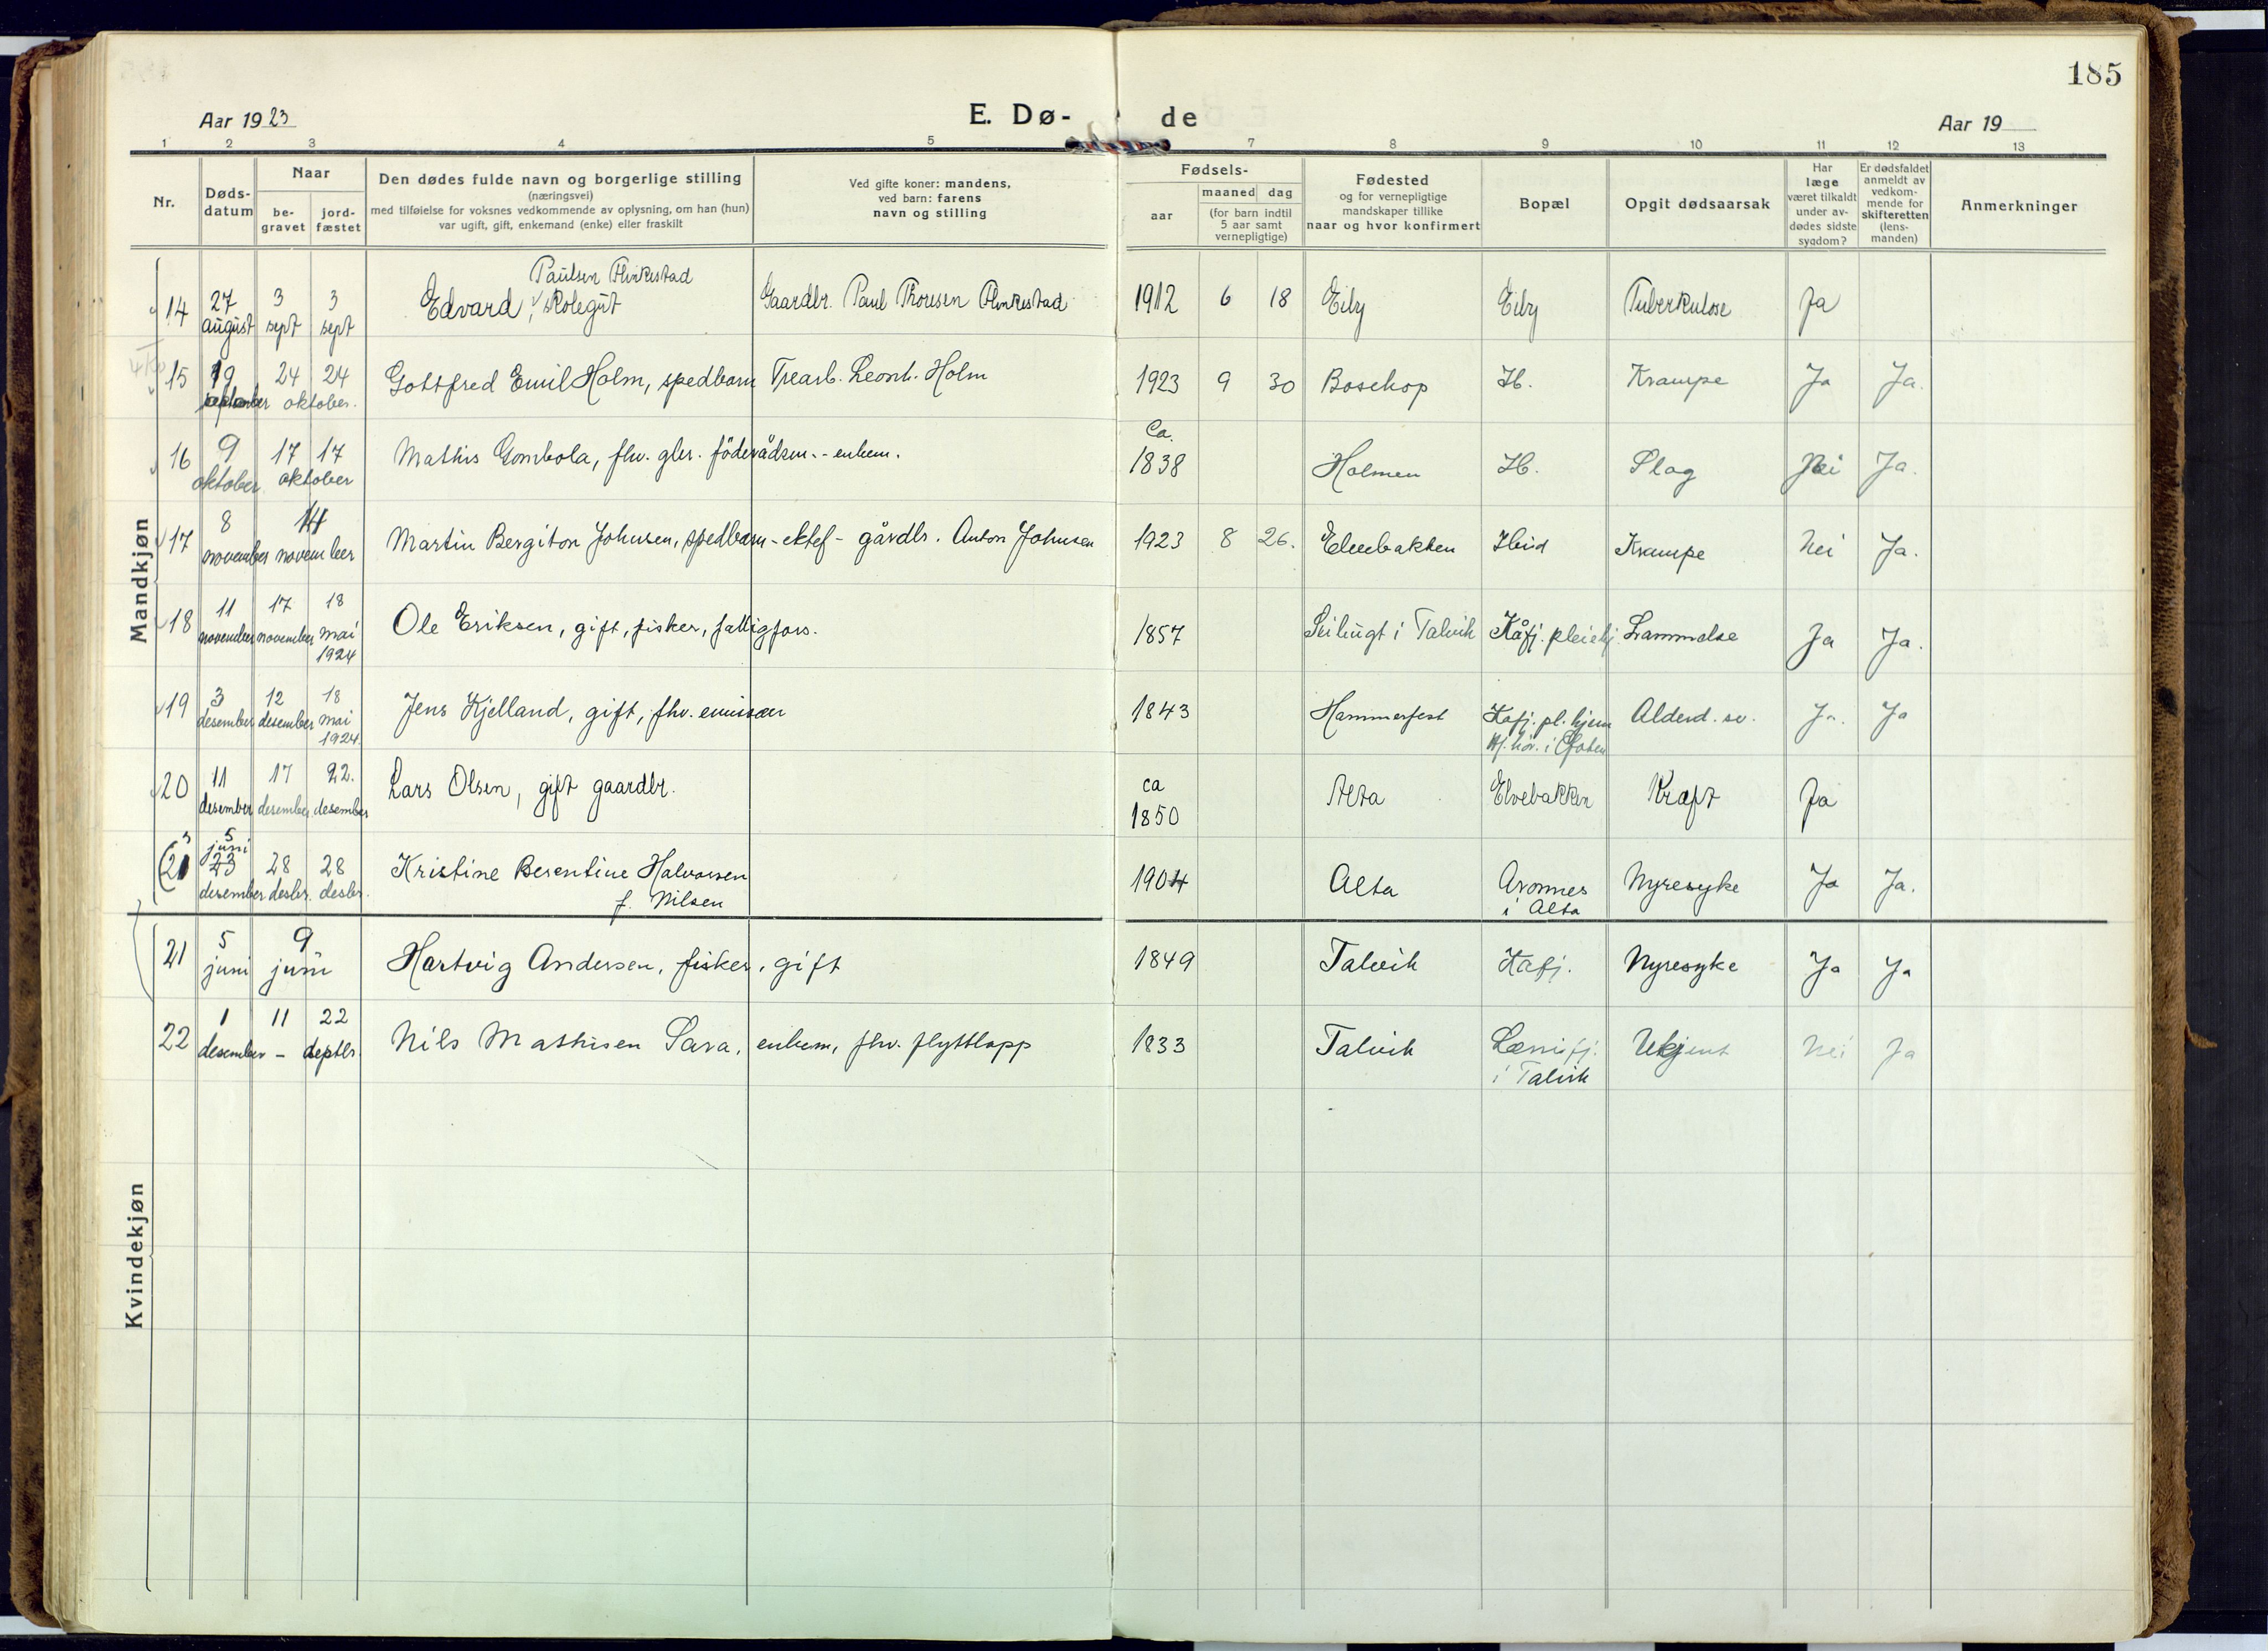 185
Aar 1923
E. Dø- de
Aar 19
1 2 3 4 5 7 8 9 10 11 12 13
Nr.
Døds-
datum
Naar
be-
gravet
jord-
fæstet
Den dødes fulde navn og borgerlige stilling
(næringsvei)
med tilføielse for voksnes vedkommende av oplysning, om han (hun)
var ugift, gift, enkemand (enke) eller fraskilt
Ved gifte koner: mandens,
ved barn: farens
navn og stilling
Fødsels-
aar
maaned dag
(for barn indtil
5 aar samt
vernepligtige)
Fødested
og for vernepligtige
mandskaper tillike
naar og hvor konfirmert
Bopæl
Opgit dødsaarsak
Har
læge
været tilkaldt
under av-
dødes sidste
sygdom?
Er dødsfaldet
anmeldt av
vedkom-
mende for
skifteretten
(lens-
manden)
Anmerkninger
Mandkjøn
Paulsen
14 27 3 3 Edvard, skolegut Gaardbr. Paul Thoresen 1912 6 18 Eiby Eiby Tuberkulose Ja
august sept sept
15 19 24 24 Gottfred Emil Holm, spedbarn Trearb. Leonh. Holm 1923 9 30 Bosekop H. Krampe Ja Ja.
oktober.
Ca.
16 9 17 17 Mathis Gombola, fhv. gbr. föderådsm. - enkem. 1838 Holmen H. Plag Nei Ja.
oktober oktober
17 8 14 Martin Bergiton Johnsen, spedbarn - ektef - gårdbr. Anton Johnsen 1923 8 26. Elvebakken Ibid Krampe Nei Ja.
november november
18 11 17 18 Ole Eriksen, gift, fisker, fattigfors. 1857 i Talvik Kåfj. pleiehj. Lammelse Ja Ja.
november november mai
1924
19 3 12 18 Jens Kjelland, gift, fhv. emissær 1843 Hammerfest Kafj. pl. hjem Alderd. sv. Ja. Ja
desember desember mai
1924
20 11 17 22. Lars Olsen, gift gaardbr. ca 1850 Alta Elvebakken Kræft Ja
desember desember desember
5
juni
(21 23 28 28 Kristine Berentine Halvorsen 1904 Alta Aronnes Nyresyke Ja Ja.
desember desbr. desbr. f. Nilsen i Alta
21 5 9 Hartvig Andersen, fisker, gift 1849 Talvik Kafj. Nyresyke Ja Ja
juni juni
22 1 11 22 Nils Mathisen Sara, enkem, fhv. flyttlapp 1833 Talvik Ukjent Nei Ja
desember - i Talvik
Kvindekjøn